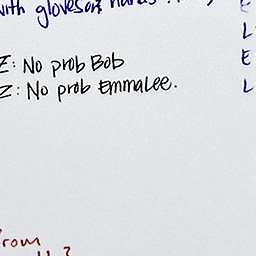 with gloves on hands
E
L
E
L
E: No prob Bob
Z: No prob EmmaLee.
from
?